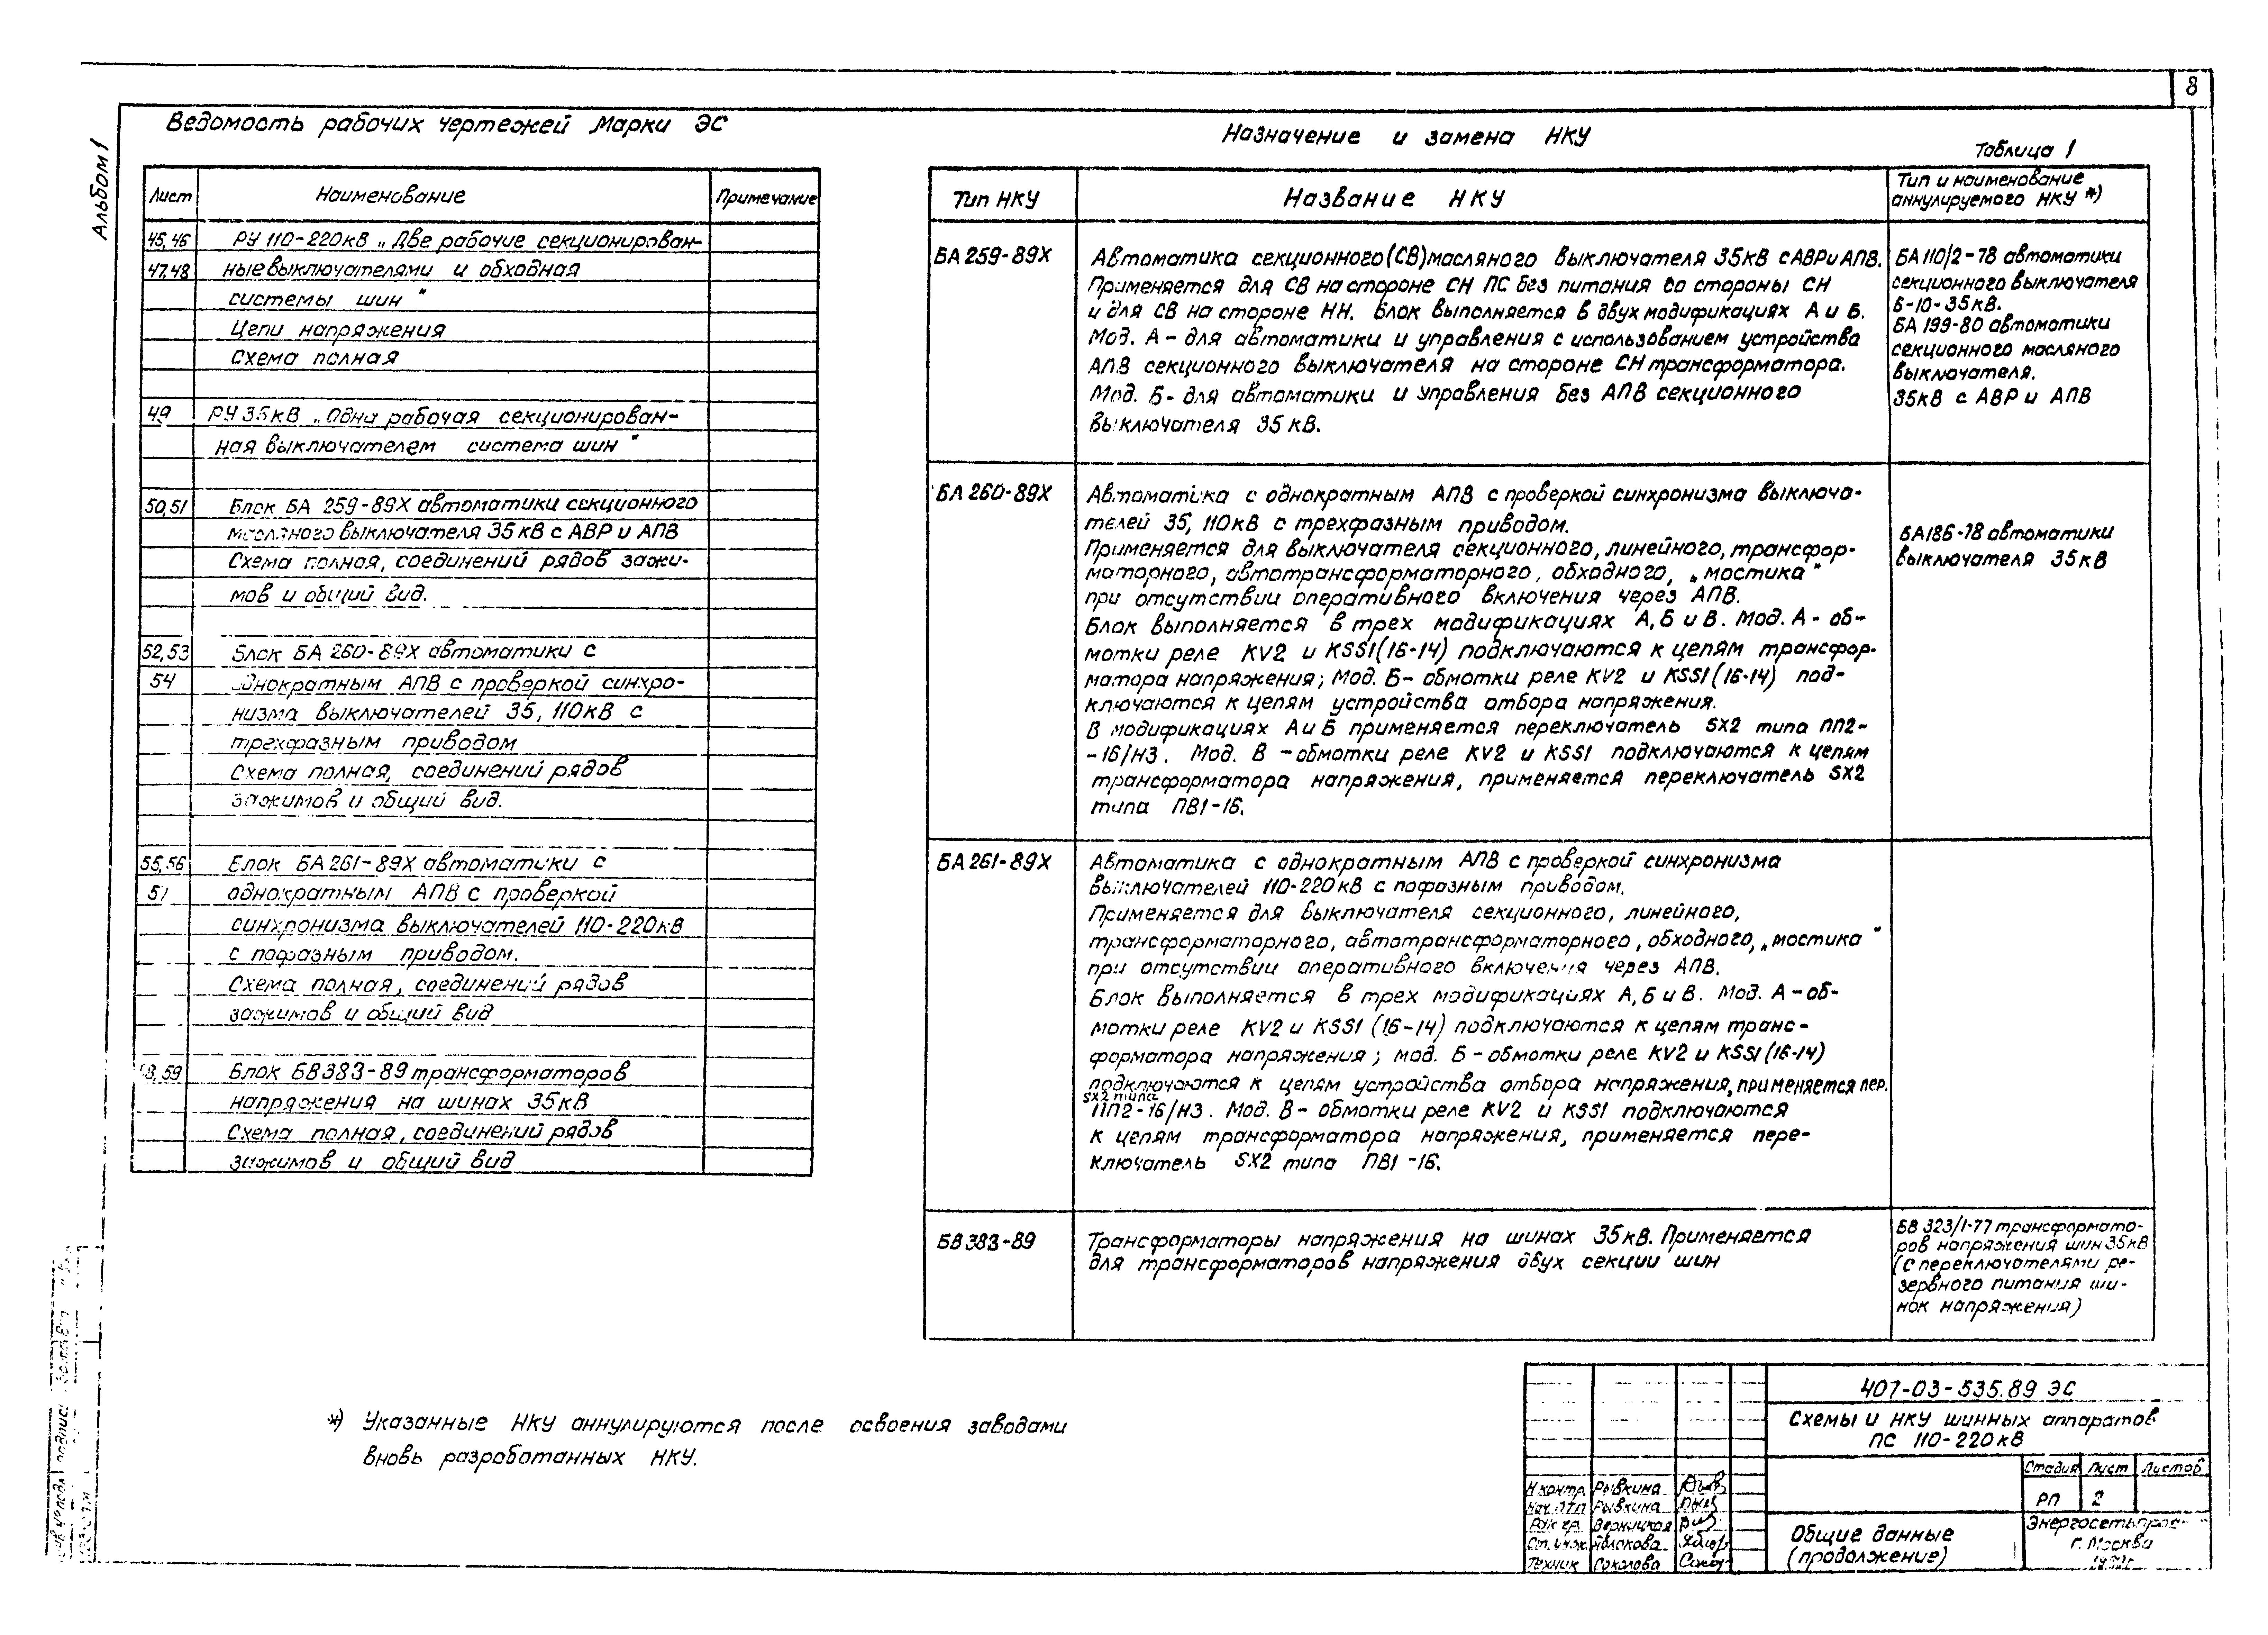 8
Альбом 1
Ведомость рабочих чертежей марки ЭС
Лист Наименование Примечание
45,46 РУ 110-220кВ „Две рабочие секционирован-
47,48 ные выключателями и обходная
системы шин"
Цепи напряжения
Схема полная
49 РУ 35кВ „Одна рабочая секционирован-
ная выключателем система шин"
50,51 Блок БА 259-89Х автоматики секционного
масляного выключателя 35кВ с АВР и АПВ
Схема полная, соединений рядов зажи-
мов и общий вид.
52,53 Блок БА 260-89Х автоматики с
54 однократным АПВ с проверкой синхро-
низма выключателей 35, 110кВ с
трехфазным приводом
Схема полная, соединений рядов
зажимов и общий вид.
55,56 Блок БА 261-89Х автоматики с
57 однократным АПВ с проверкой
синхронизма выключателей 110-220кВ
с пофазным приводом.
Схема полная, соединений рядов
зажимов и общий вид
8,59 Блок БВ383-89 трансформаторов
напряжения на шинах 35кВ
Схема полная, соединений рядов
зажимов и общий вид
Назначение и замена НКУ
Таблица 1
Тип НКУ Название НКУ Тип и наименование
аннулируемого НКУ *)
БА 259-89Х Автоматика секционного(СВ)масляного выключателя 35кВ с АВР и АПВ.
Применяется для СВ на стороне СН ПС без питания со стороны СН
и для СВ на стороне НН. Блок выполняется в двух модификациях А и Б.
Мод. А - для автоматики и управления с использованием устройства
АПВ секционного выключателя на стороне СН трансформатора.
Мод. Б - для автоматики и управления без АПВ секционного
выключателя 35 кВ.
БА 110/2-78 автоматики
секционного выключателя
6-10-35кВ.
БА 199-80 автоматики
секционного масляного
выключателя.
35кВ с АВР и АПВ
БА 260-89Х Автоматика с однократным АПВ с проверкой синхронизма выключа-
телей 35, 110кВ с трехфазным приводом.
Применяется для выключателя секционного, линейного, трансфор-
маторного, автотрансформаторного, обходного, „мостика"
при отсутствии оперативного включения через АПВ.
Блок выполняется в трех модификациях А, Б и В. Мод. А - об-
мотки реле KV2 и KSS1(16-14) подключаются к цепям трансфор-
матора напряжения; Мод. Б - обмотки реле KV2 и KSS1 (16-14) под-
ключаются к цепям устройства отбора напряжения.
В модификациях А и Б применяется переключатель SX2 типа ПП2-
-16/Н3. Мод. В - обмотки реле KV2 и KSS1 подключаются к цепям
трансформатора напряжения, применяется переключатель SX2
типа ПВ1-16.
БА186-78 автоматики
выключателя 35кВ
БА 261-89Х Автоматика с однократным АПВ с проверкой синхронизма
выключателей 110-220кВ с пофазным приводом.
Применяется для выключателя секционного, линейного,
трансформаторного, автотрансформаторного, обходного, „мостика"
при отсутствии оперативного включения через АПВ.
Блок выполняется в трех модификациях А, Б и В. Мод. А - об-
мотки реле KV2 и KSS1 (16-14) подключаются к цепям транс-
форматора напряжения; мод. Б - обмотки реле KV2 и KSS1 (16-14)
подключаются к цепям устройства отбора напряжения, применяется пер.
SX2 типа
ПП2-16/Н3. Мод. В - обмотки реле KV2 и KSS1 подключаются
к цепям трансформатора напряжения, применяется пере-
ключатель SX2 типа ПВ1-16.
БВ 383-89 Трансформаторы напряжения на шинах 35кВ. Применяется
для трансформаторов напряжения двух секции шин
БВ 323/1-77 трансформато-
ров напряжения шин 35кВ
(с переключателями ре-
зервного питания ши-
нок напряжения)
*) Указанные НКУ аннулируются после освоения заводами
вновь разработанных НКУ.
407-03-535.89 ЭС
Схемы и НКУ шинных аппаратов
ПС 110-220кВ
Стадия Лист Листов
РП 2
Н.контр Рывкина
Рывкина
Верницкая
Ст.инж. Яблокова
Техник Соколова
Общие данные
(продолжение)
Энергосетьпрое
г. Москва